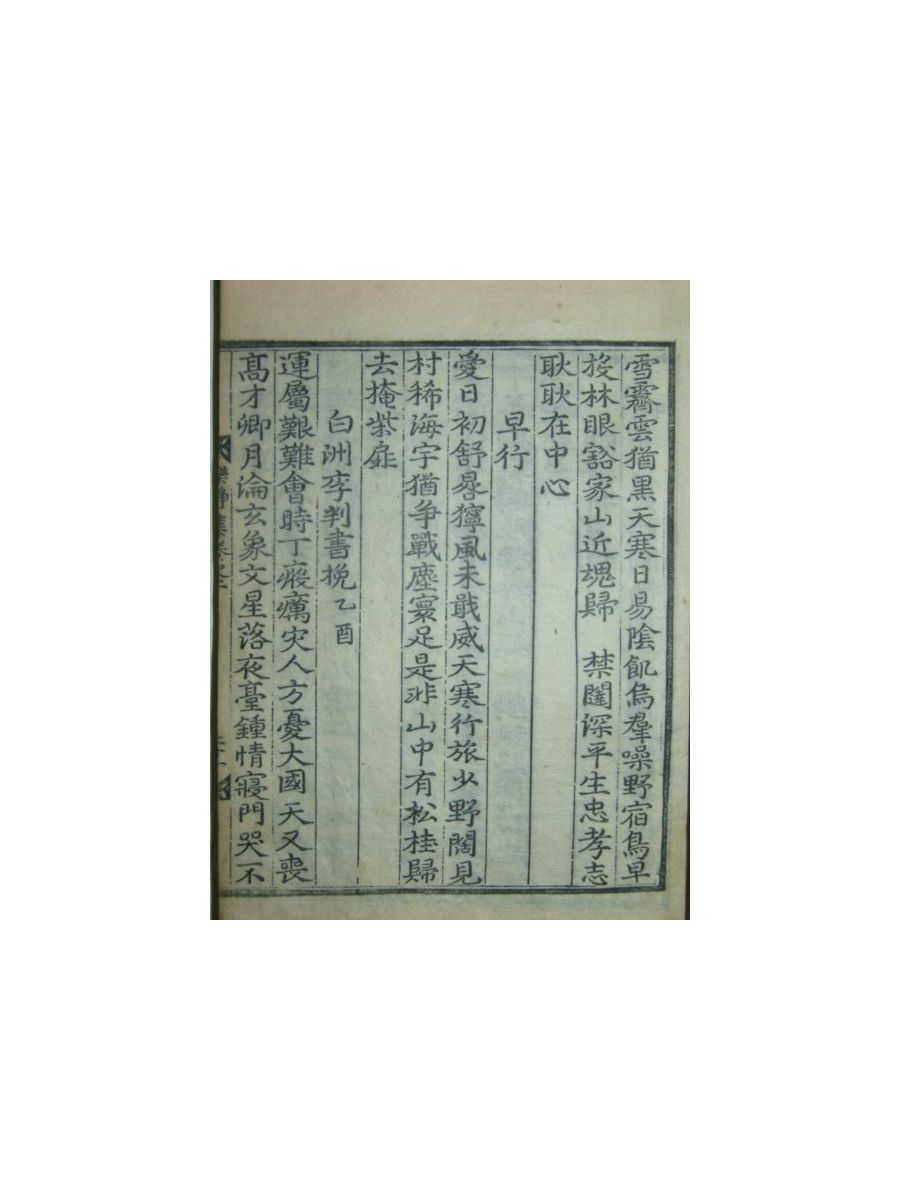 雪霽雲猶黑天寒日易陰飢烏羣噪野宿鳥早
投林眼豁家山近魂歸 禁闥深平生忠孝志
耿耿在中心
早行
愛日初舒晷獰風未戢威天寒行旅少野闊見
村稀海宇猶爭戰塵寰足是非山中有松桂歸
去掩柴扉
白洲李判書挽乙酉
運屬艱難會時丁癘灾人方憂大國天又喪
高才卿月淪玄象文星落夜臺鍾情寢門哭不